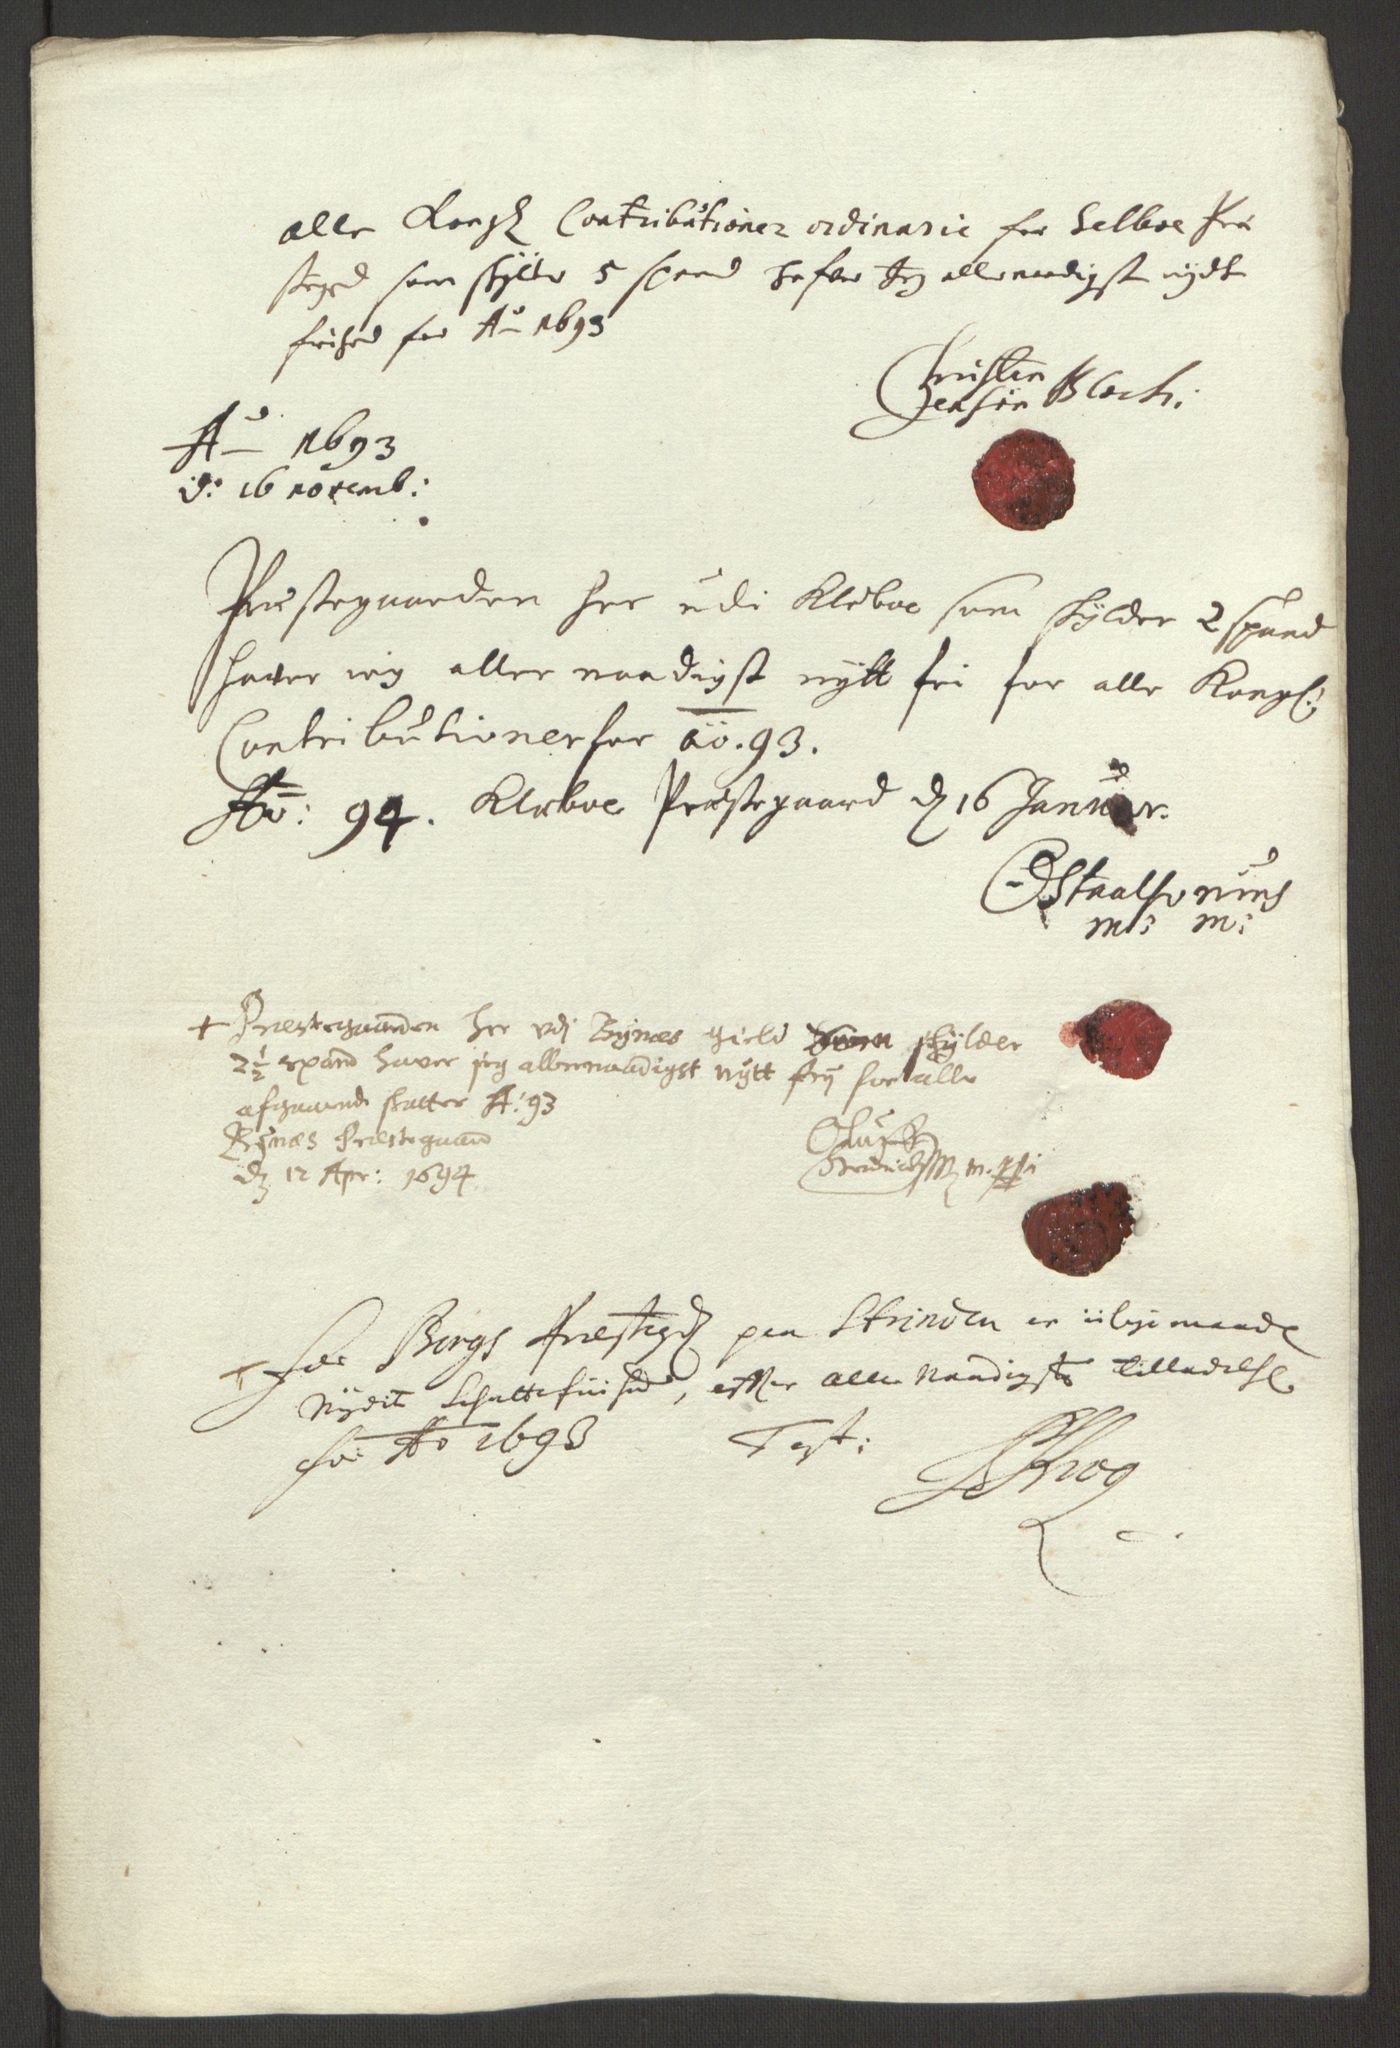 alle Kongl Contributioner ordinarie for Selboe Præ
stegrd som skylder 5 spand hafver Jeg allernaadigst nydt
frihed for Ao 1693
Christen
Jensøn Bloch:
Ao 1693
d: 16 novemb:
Præstegaarden her udi Klæboe som skylder 2 spand
haver ieg aller naadigst nytt fri for alle Kongl:
Contributioner for ao. 93.
Ao: 94. Klæboe Præstegaard d 16 Januar.
m: m:
+ Præstegaarden her udj Bynæs gield som skylder
2 1/2 spand haver jeg allernaadigst nytt frj for alle
afgaaende skatter A: 93
Bynæs Præstegaard
d 12 Apr: 1694
Oluf
m. pp:
+ for Bergs Præstegrd paa Strinden er
Nydit Schattefriihed, efter aller Naadigste Tilladelse
for Ao 1693 Test:
Krog